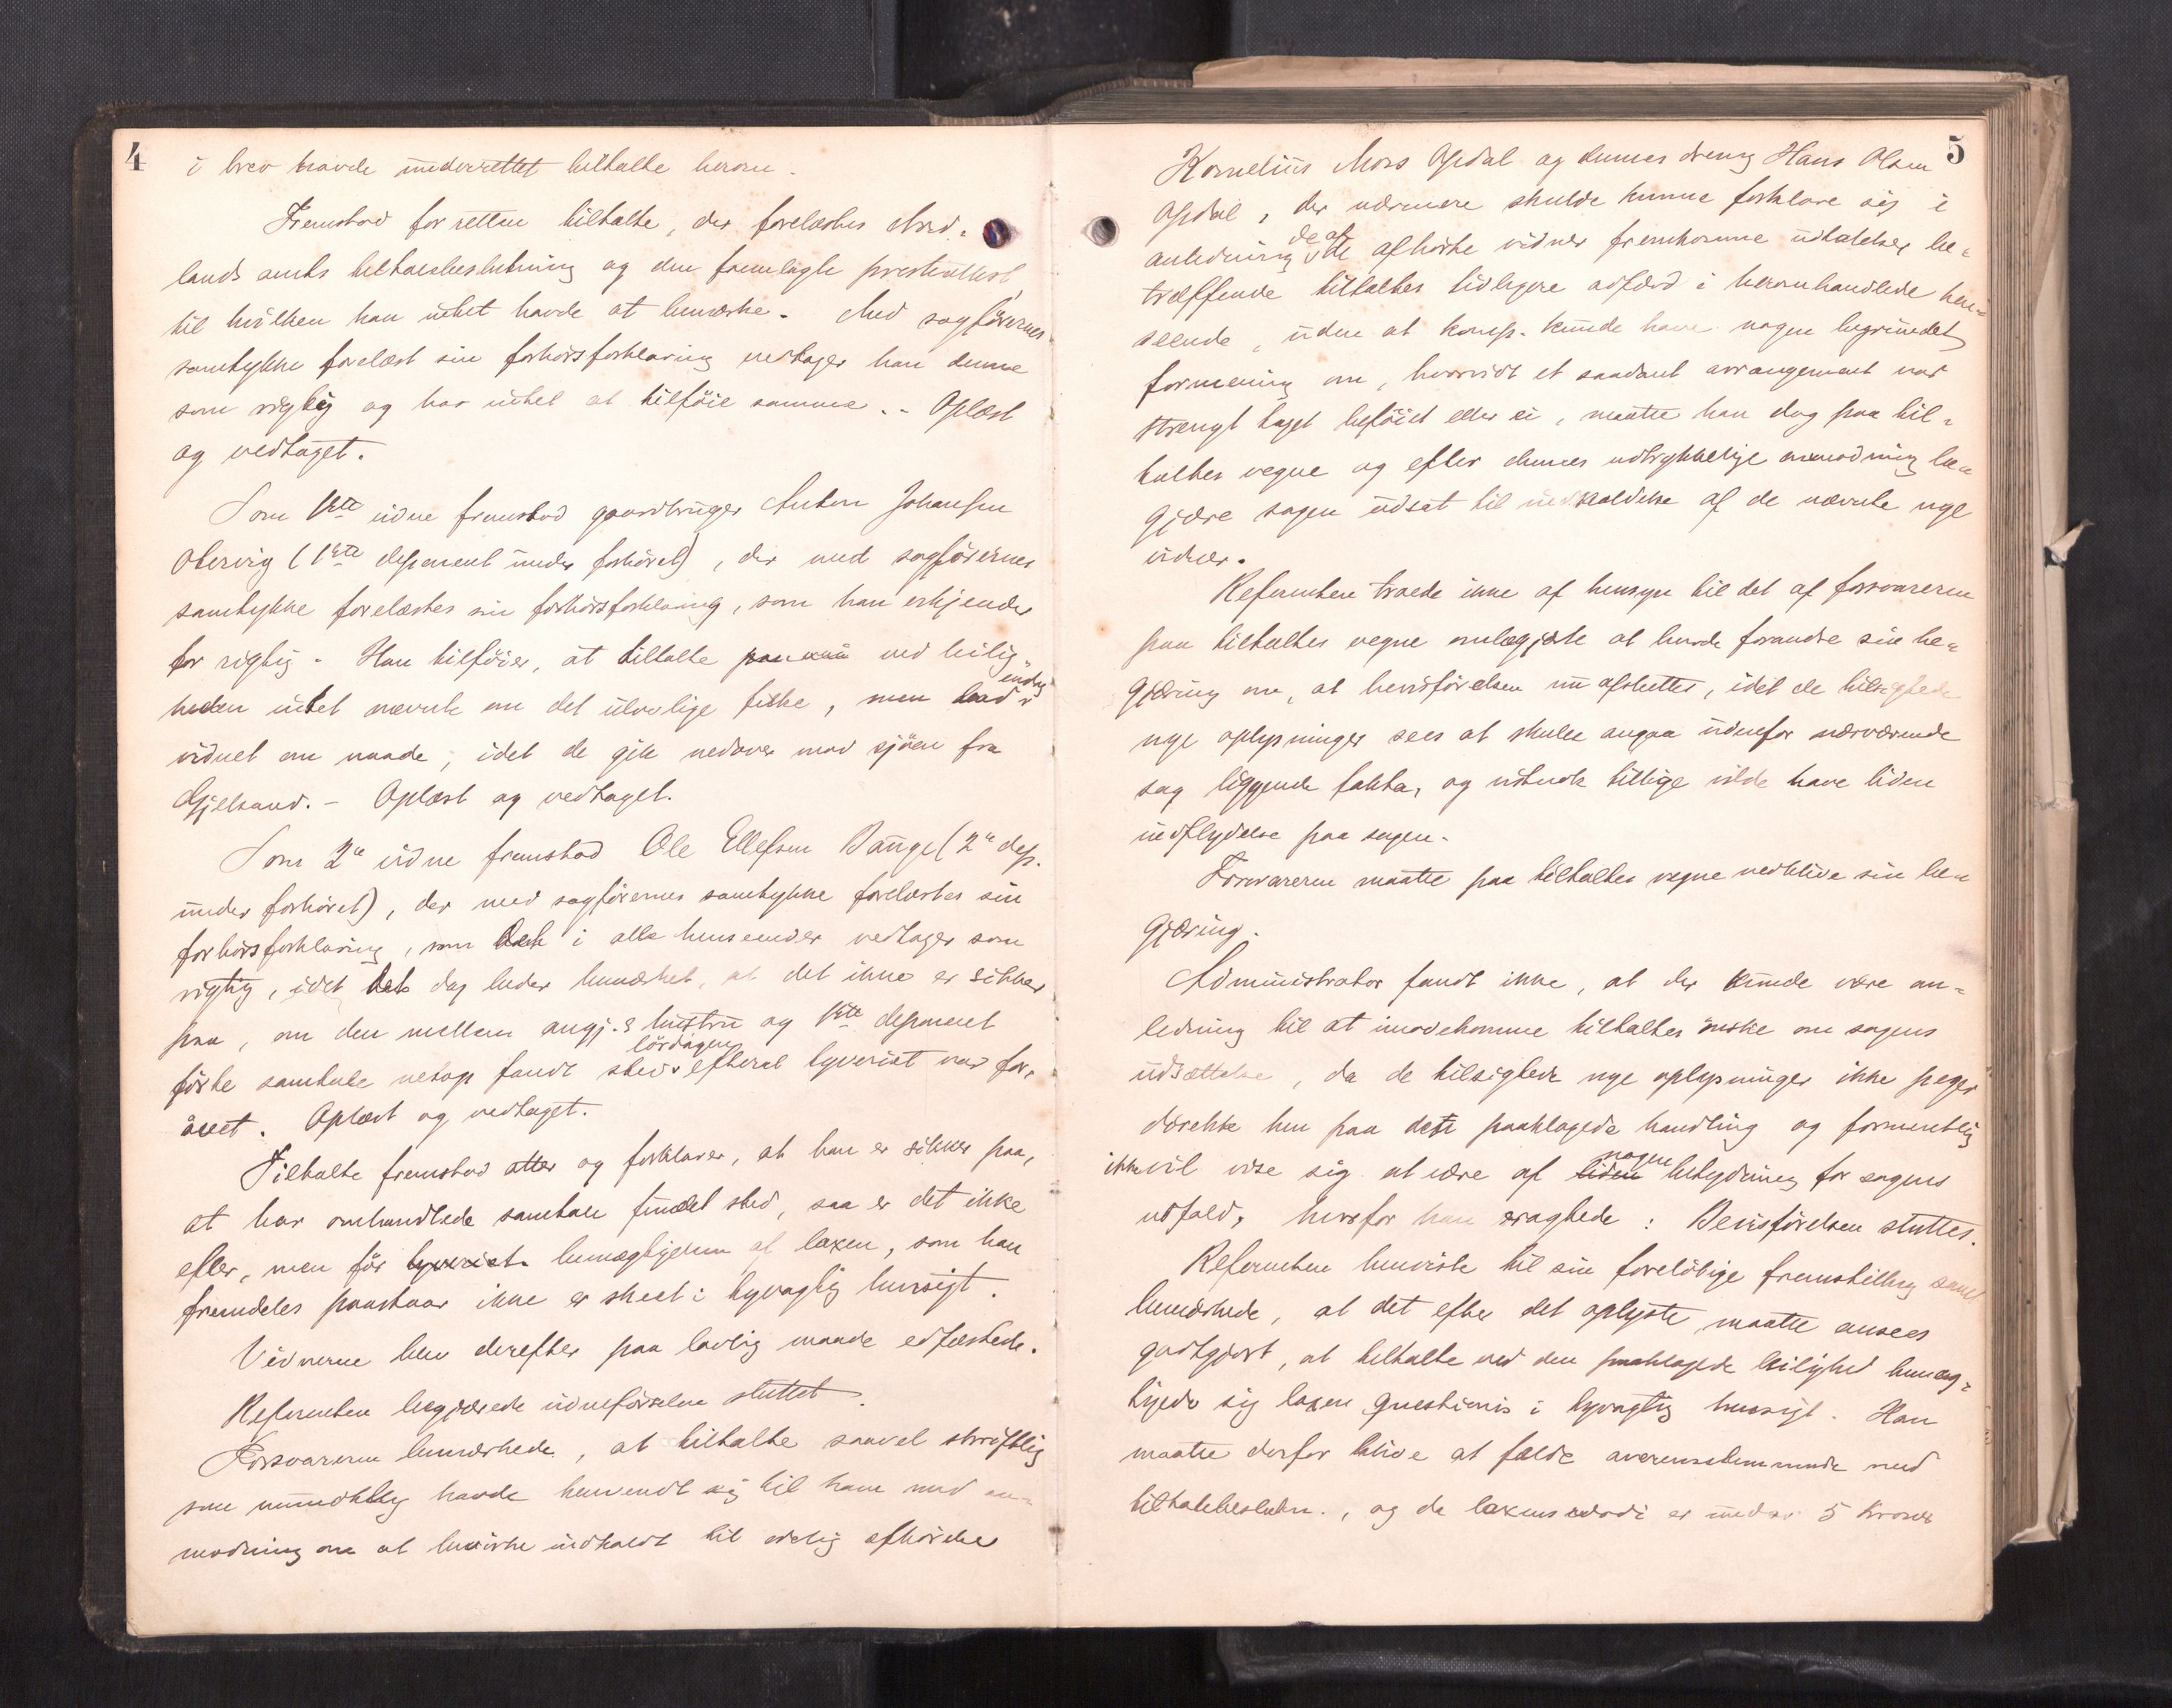 4
i brev havde underrettet tiltalte herom.
Fremstod for retten tiltalte, der forelæstes Nord-
lands amts tiltalebeslutning og den fremlagte presteattest,
til hvilken han intet havde at bemærke. Med sagførernes
samtykke forelæst sin forhørsforklaring vedtager han denne
som rigtig og har intet at tilføie samme. - Oplæst
og vedtaget.
Som 1ste vidne fremstod gaardbruger Anton Johansen
(1ste deponent under forhøret), der med sagførernes
samtykke forelæstes sin forhørsforklaring, som han erkjender
for rigtig. Han tilføier, at tiltalte ved leilig-
heden intet nævnte om det ulovlige fiske, men bad endog
vidnet om naade, idet de gik nedover mod sjøen fra
Gjelsand. - Oplæst og vedtaget.
Som 2et vidne fremstod Ole Ellefsen Bauge (2et dep.
under forhøret), der med sagførernes samtykke forelæstes sin
forhørsforklaring, som i alle henseender vedtages som
rigtig, idet det dog beder bemærket, at det ikke er sikker
paa, om den mellem angj.s hustru og 1ste deponent
førte samtale netop fandt sted lørdagen efterat tyveriet var for-
øvet. Oplæst og vedtaget.
Tiltalte fremstod atter og forklarer, at han er sikker paa,
at har omhandlede samtale fundet sted, saa er det ikke
efter, men før tyveriet bemægtigelsen af laxen, som han
fremdeles paastaar ikke er skeet i tyvagtig hensigt.
Vidnerne blev derefter paa lovlig maade edfæstede.
Referenten begjærede vidneførselen sluttet.
Forsvareren bemærkede, at tiltalte saavel skriftlig
som mundtlig havde henvendt sig til ham med an-
modning om at bevirke indkaldt til edelig afhørelse
5
Kornelius Mors Opdal og dennes dreng Hans Olsen
Opdal, der nærmere skulde kunne forklare sig i
anledning de af de afhørte vidner fremkomne udtalelser be-
træffende tiltaltes tidligere adfærd i heromhandlede hen-
seende, uden at komp. kunde have nogen begrundet
formening om, hvorvidt et saadant arrangement var
strengt taget beføiet eller ei, maatte han dog paa til-
taltes vegne og efter dennes udtrykkelige anmodning be-
gjære sagen udsat til indkaldelse af de nævnte nye
vidner.
Referenten troede ikke af hensyn til det af forsvareren
paa tiltaltes vegne anlægjorte at burde forandre sin be-
gjæring om, at bevisførelsen nu afsluttes, idet de tilsigtede
nye oplysninger sees at skulle angaa udenfor nærværende
sag liggende fakta, og vistnok tillige vilde have liden
indflydelse paa sagen.
Forsvareren maatte paa tiltaltes vegne vedblive sin be-
gjæring.
Administrator fandt ikke, at der kunde være an-
ledning til at imødekomme tiltaltes ønske om sagens
udsættelse, da de tilsigtede nye oplysninger ikke peger
direkte hen paa den paaklagede handling og formentlig
ikke vil vise sig at være af liden nogen betydning for sagens
udfald, hvorfor han eragtede: Bevisførelsen sluttes.
Referenten henviste til sin foreløbige fremstilling samt
bemærkede, at det efter det oplyste maatte ansees
godtgjort, at tiltalte ved den paaklagede leilighed bemæg-
tigede sig laxen questionis i tyvagtig hensigt. Han
maatte derfor blive at fælde overensstemmende med
tiltalebeslutn., og da laxens værdi er under 5 kroner